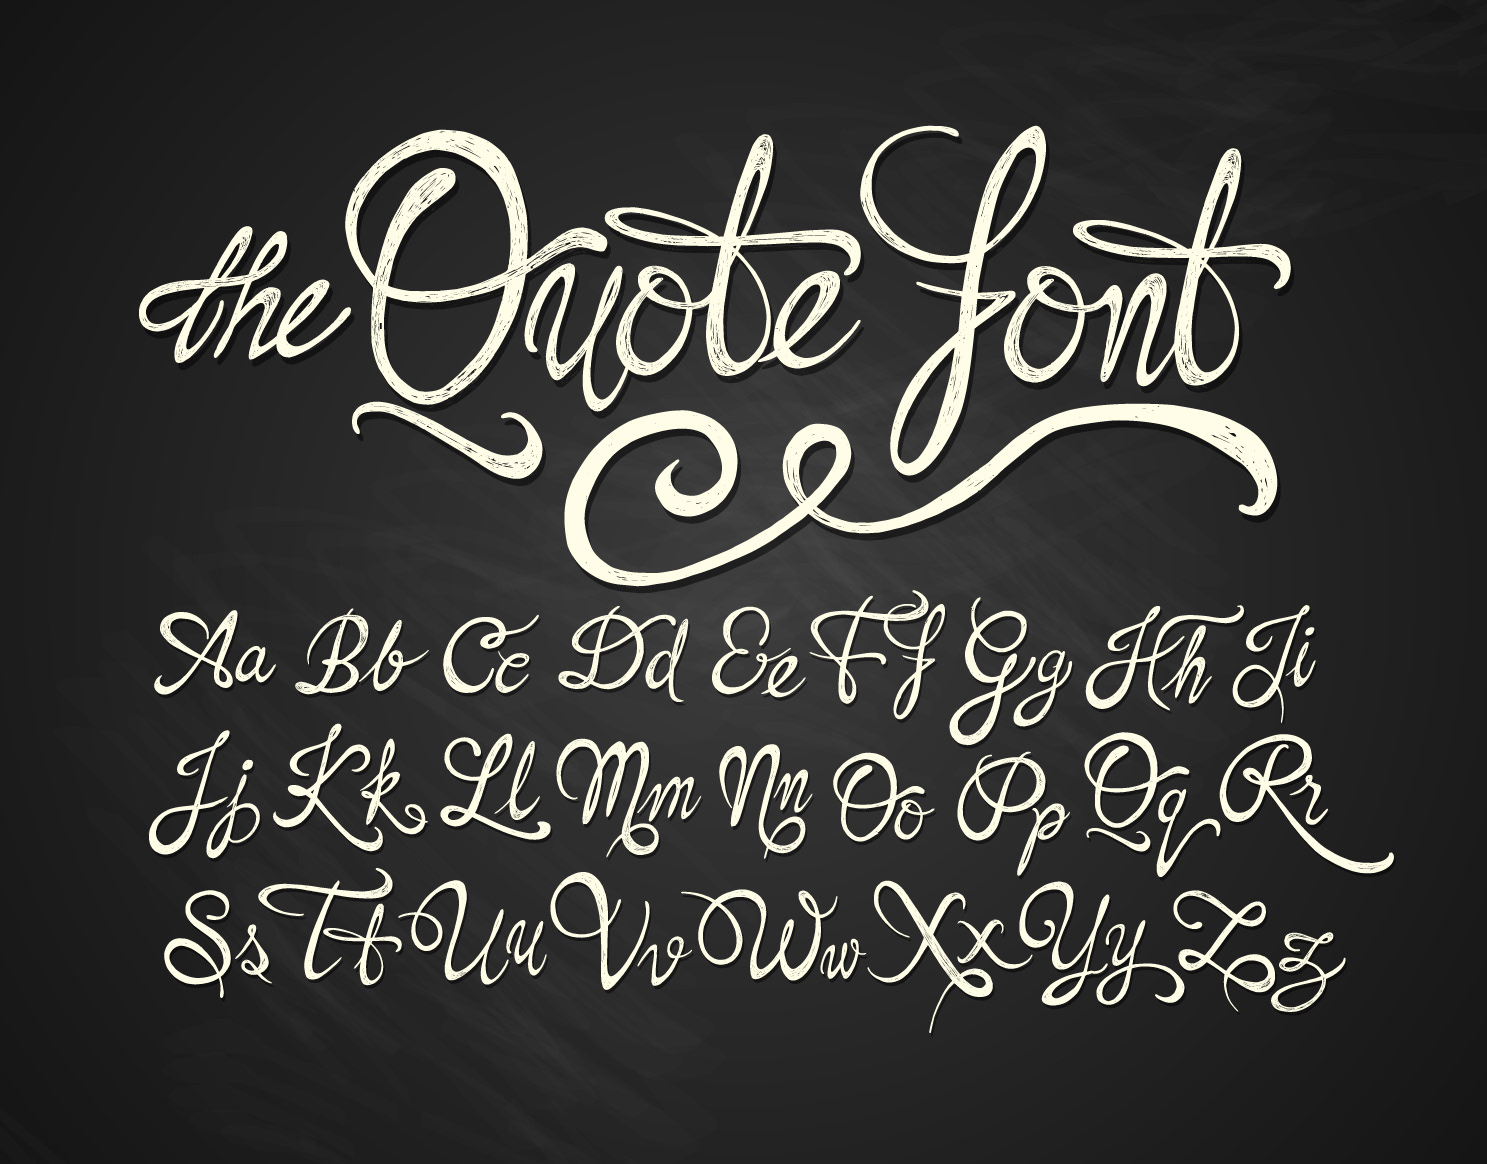 the Quote font
Aa Bb Cc Dd Ee Ff Gg Hh Ii
Jj Kk Ll Mm Nn Oo Pp Qq Rr
Ss Tt Uu Vv Ww Xx Yy Zz